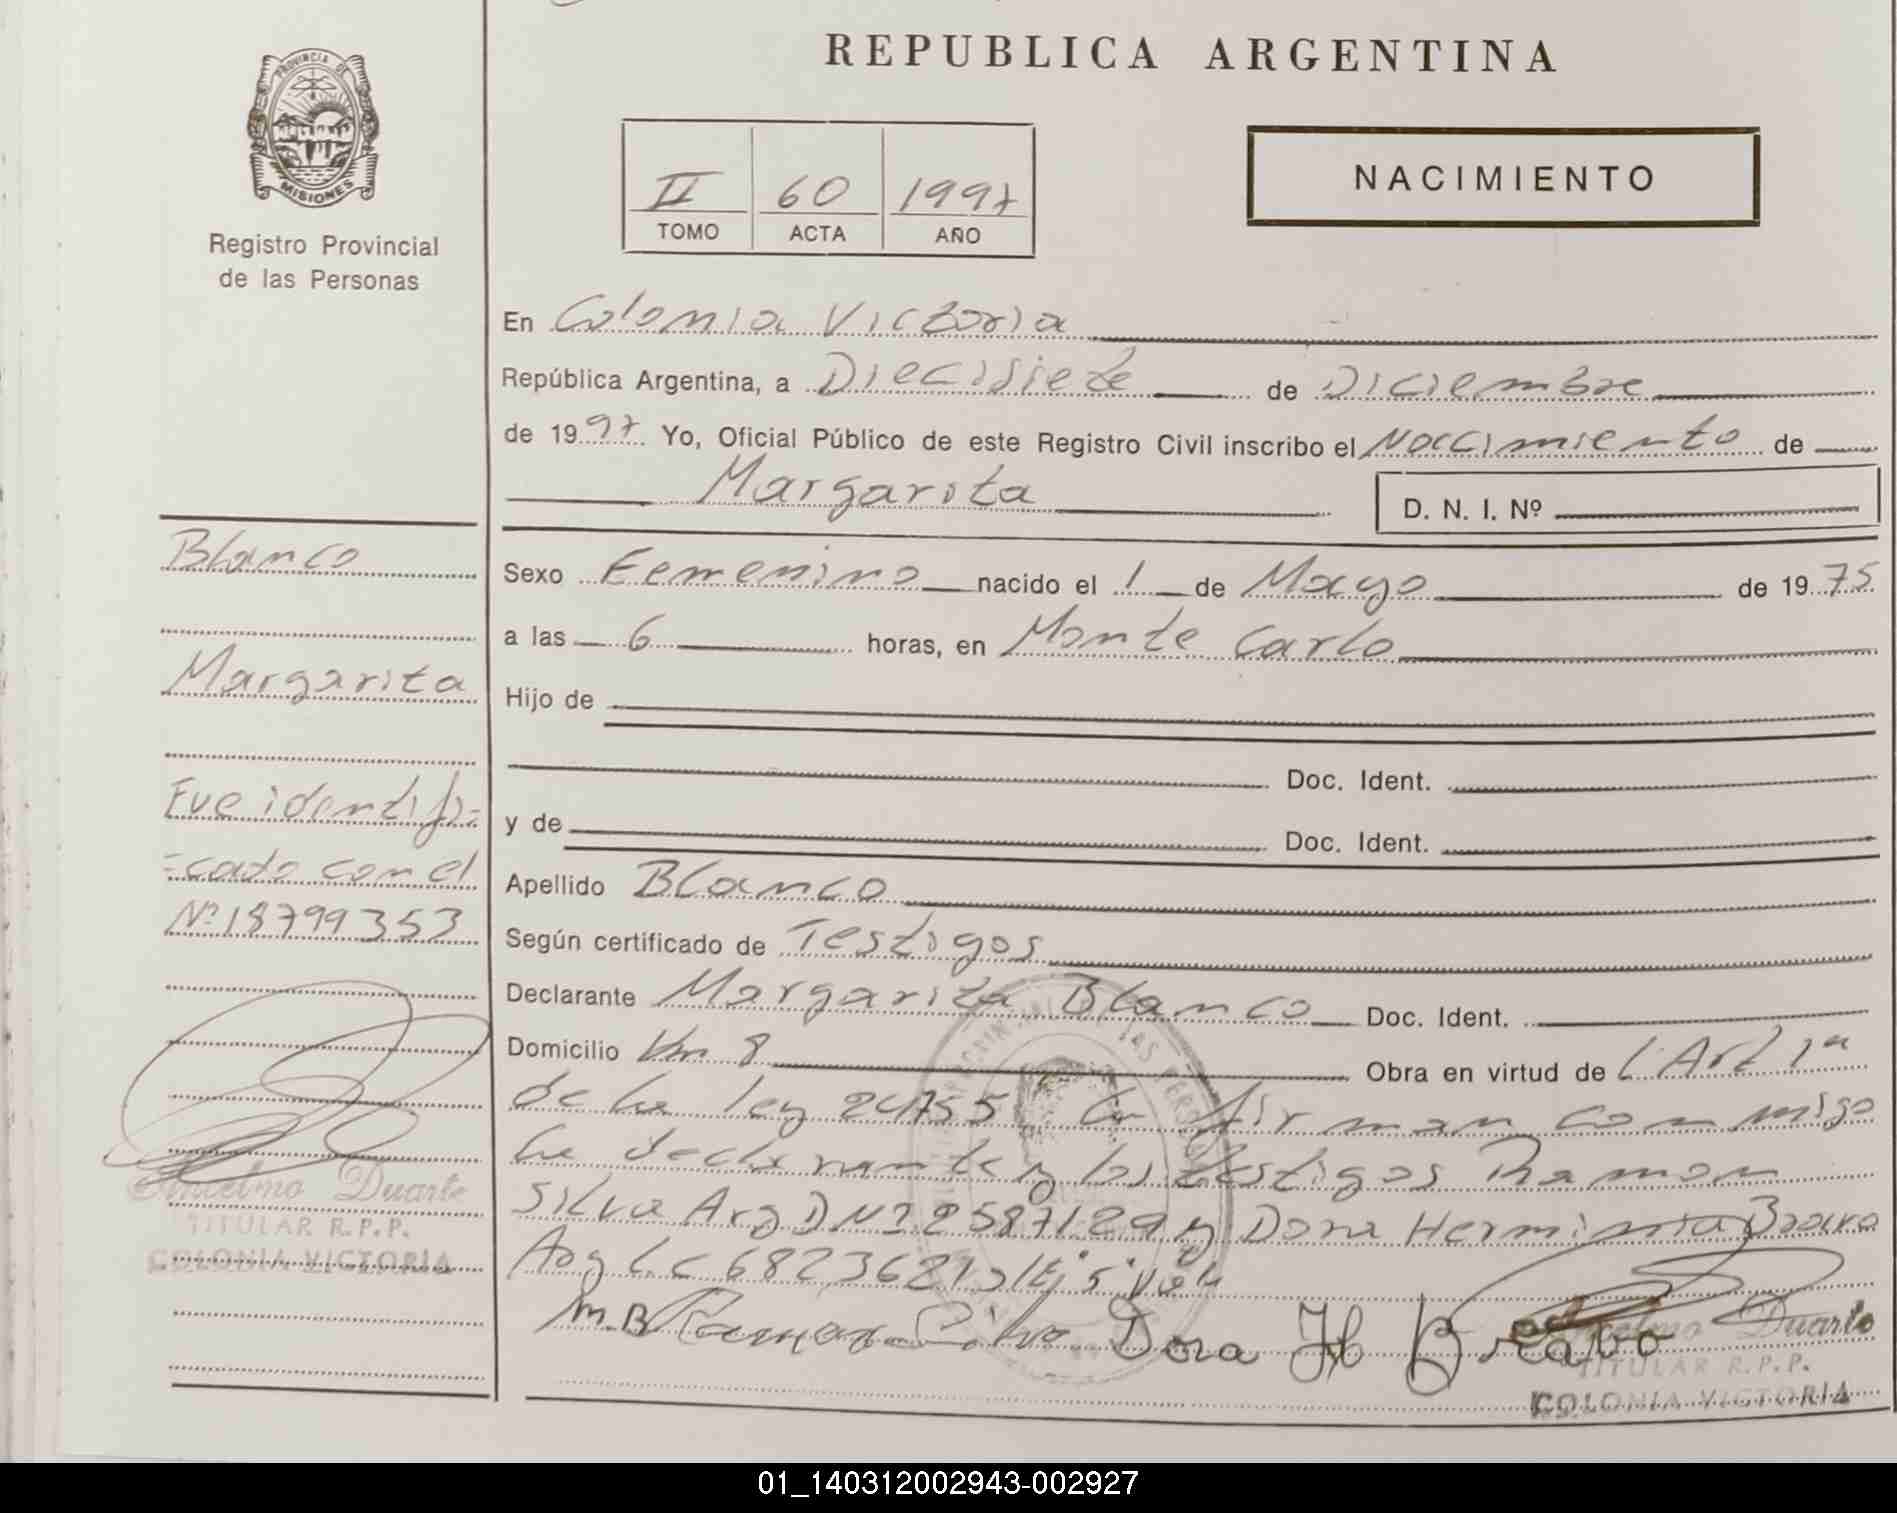 REPUBLICA ARGENTINA
PROVINCIA DE
MISIONES
Registro Provincial
de las Personas
II 60 1997
TOMO ACTA AÑO
NACIMIENTO
En Colonia Victoria
República Argentina, a Diecisiete de Diciembre
de 1997 Yo, Oficial Público de este Registro Civil inscribo el Naccimiento de
Margarita D. N. I. Nº
Sexo Femenino nacido el 1 de Mayo de 1975
a las 6 horas, en Monte Carlo
Hijo de
Doc. Ident.
y de Doc. Ident.
Apellido Blanco
Según certificado de Testigos
Declarante Margarita Blanco Doc. Ident.
Domicilio Km 8 Obra en virtud de l Art 1ª
de la ley 24755 firman conmigo
la declarante y los testigos Ramon
Silva Arg DNI 2587129 y Dora Herminia Bravo
Arg L.C 6823621
M.B Ramon Silva Dora H Bravo
Anselmo Duarte
TITULAR R.P.P.
COLONIA VICTORIA
Blanco
Margarita
Fue identifi=
=cado con el
Nº 18799353
Anselmo Duarte
TITULAR R.P.P.
COLONIA VICTORIA
01_140312002943-002927